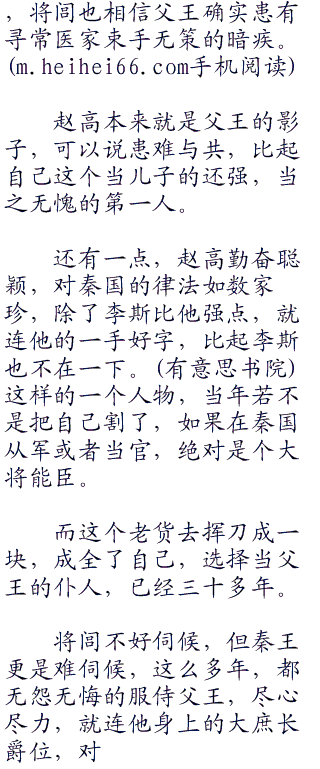 ，将闾也相信父王确实患有
寻常医家束手无策的暗疾。
(m.heihei66.com手机阅读)
赵高本来就是父王的影
子，可以说患难与共，比起
自己这个当儿子的还强，当
之无愧的第一人。
还有一点，赵高勤奋聪
颖，对秦国的律法如数家
珍，除了李斯比他强点，就
连他的一手好字，比起李斯
也不在一下。(有意思书院)
这样的一个人物，当年若不
是把自己割了，如果在秦国
从军或者当官，绝对是个大
将能臣。
而这个老货去挥刀成一
块，成全了自己，选择当父
王的仆人，已经三十多年。
将闾不好伺候，但秦王
更是难伺候，这么多年，都
无怨无悔的服侍父王，尽心
尽力，就连他身上的大庶长
爵位，对